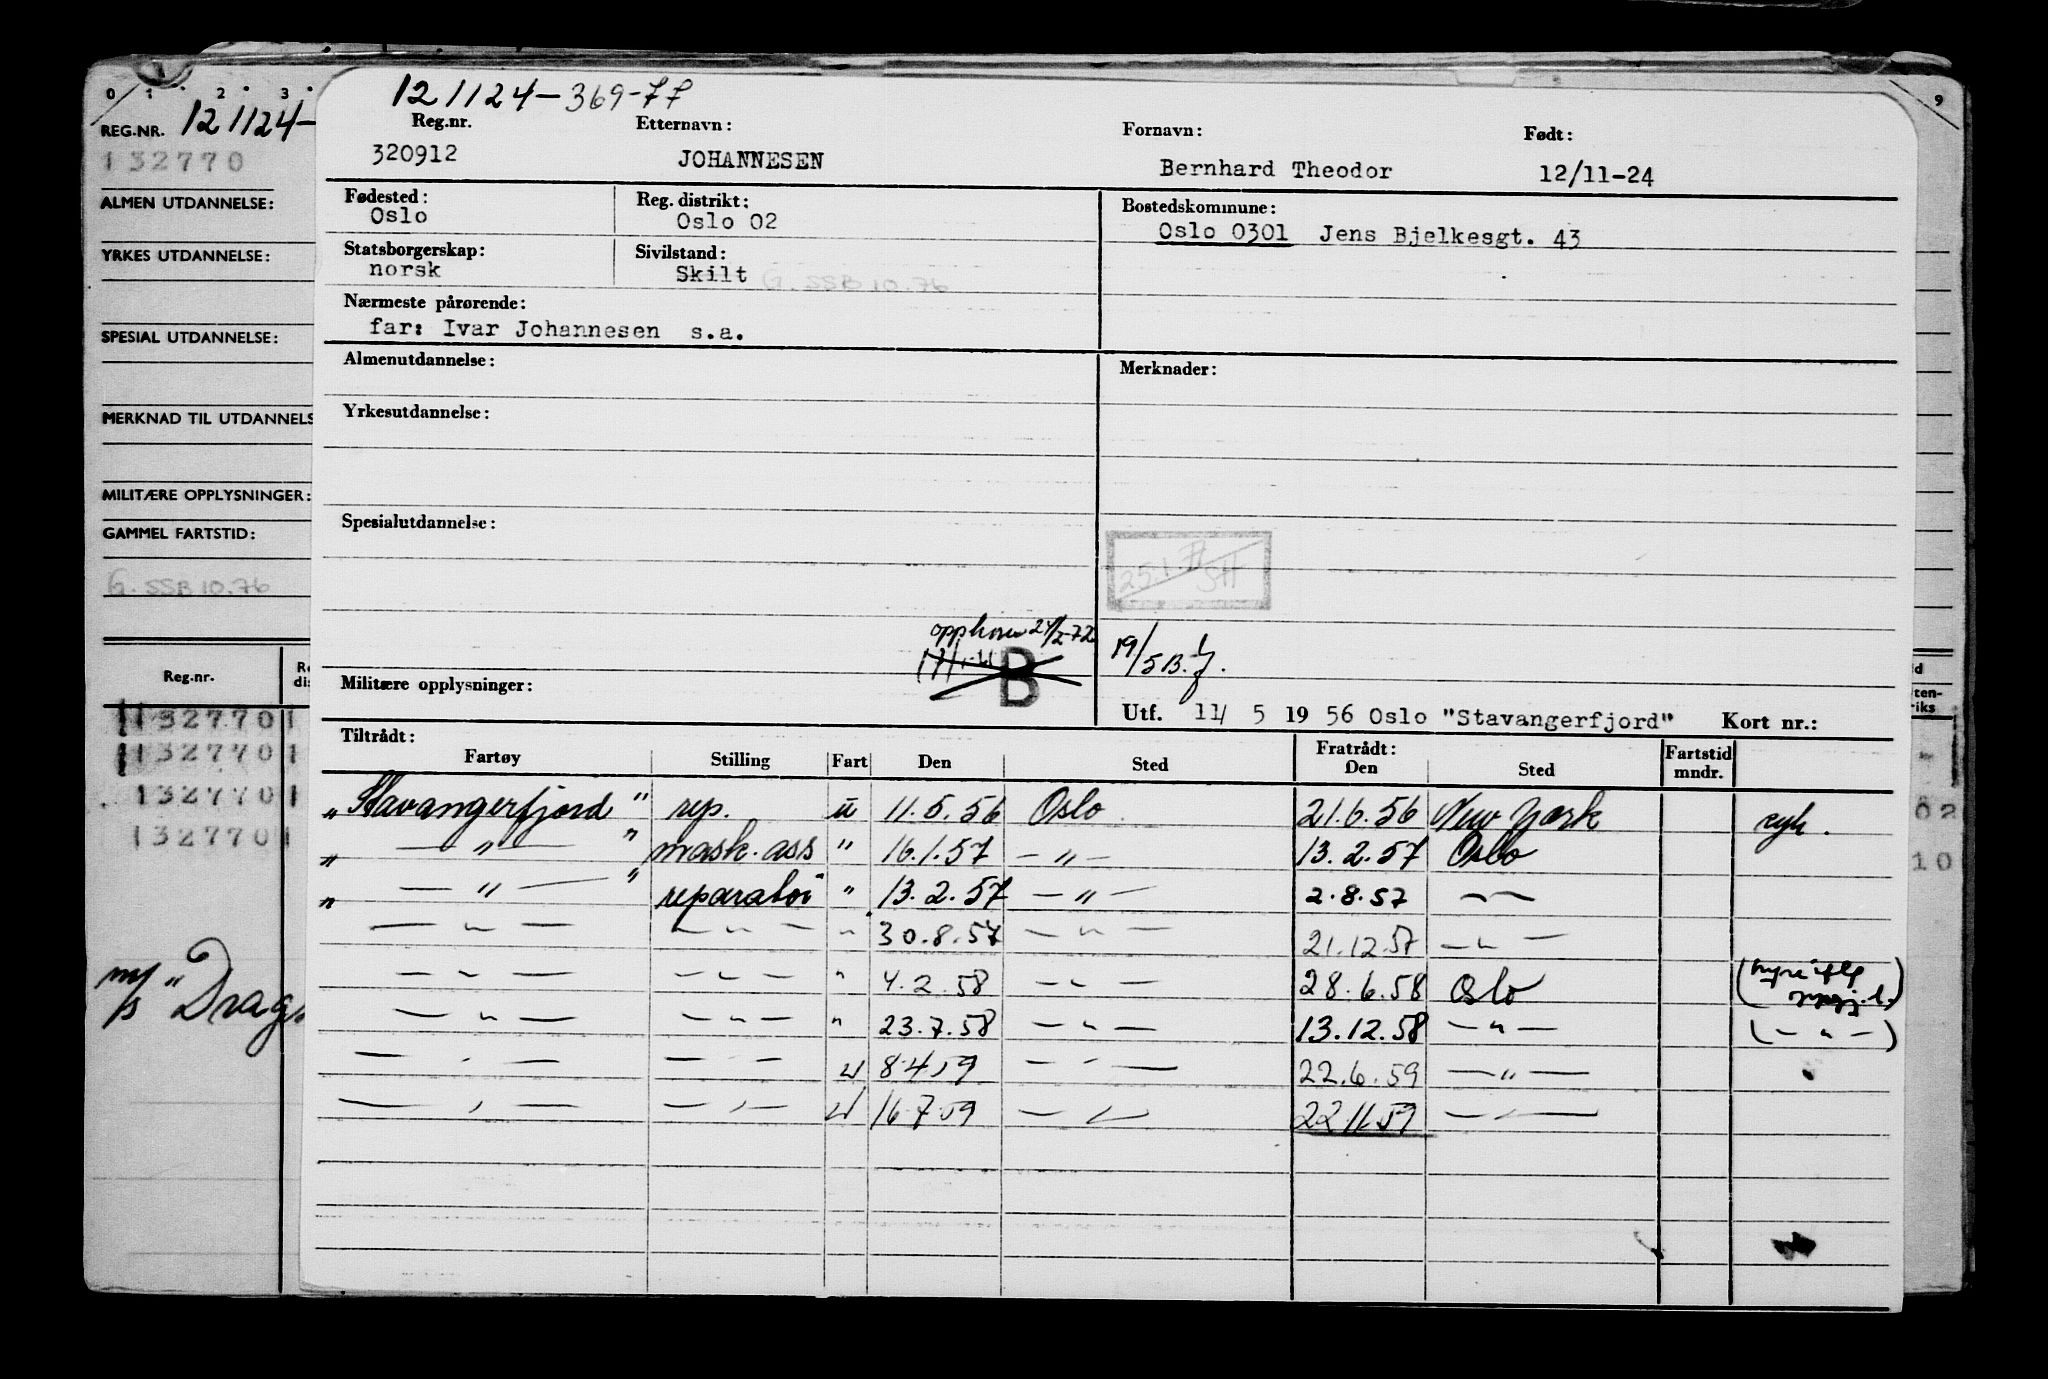 0 1 2 3 9
REG.NR. 121124-
132770
ALMEN UTDANNELSE:
YRKES UTDANNELSE:
SPESIAL UTDANNELSE:
MERKNAD TIL UTDANNELS
MILITÆRE OPPLYSNINGER:
GAMMEL FARTSTID:
G. SSB 10.76
Reg.nr.
132770 1
132770 1
132770 1
132770 1
m/s "Drag
121124-369-77
Reg.nr. Etternavn: Fornavn: Født:
320912 JOHANNESEN Bernhard Theodor 12/11-24
Fødested: Reg. distrikt: Bostedskommune:
Oslo Oslo 02 Oslo 0301 Jens Bjelkesgt. 43
Statsborgerskap: Sivilstand:
norsk Skilt G. SSB 10.76
Nærmeste pårørende:
far: Ivar Johannesen s.a.
Almenutdannelse: Merknader:
Yrkesutdannelse:
Spesialutdannelse:
25.1
24/2-72
B
19/5 B.J.
Militære opplysninger:
Utf. 11/ 5 19 56 Oslo "Stavangerfjord" Kort nr.:
Tiltrådt: Fratrådt: Fartstid
Fartøy Stilling Fart Den Sted Den Sted mndr.
"Stavangerfjord" rep. u 11.5.56 Oslo 21.6.56 New York syk.
" — " — " mask.ass " 16.1.57 — " — 13.2.57 Oslo
" — " — " reparatør " 13.2.57 — " — 2.8.57 — " —
— " — — " — " 30.8.57 — " — 21.12.57 — " —
— " — — " — " 4.2.58 — " — 28.6.58 Oslo
— " — — " — " 23.7.58 — " — 13.12.58 — " — (— " —)
— " — — " — u 8.4.59 — " — 22.6.59 — " —
— " — — " — u 16.7.59 — " — 22.11.59 — " —
02
10